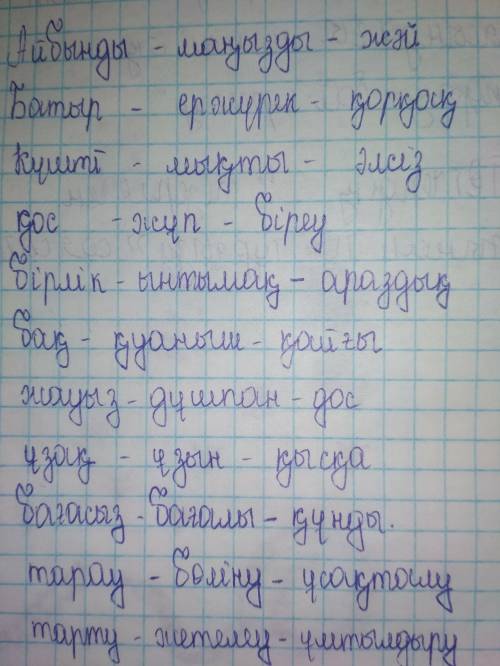 Айбынды - маңызды - жәй
Батыр - ержүрек - қорқоқ
Күшті - мықты - әлсіз
қос - жұп - біреу
бірлік - ынтымақ - араздық
бақ - қуаныш - қайғы
жауыз - дұшпан - дос
ұзақ - ұзын - қысқа
бағасыз - бағалы - құнды.
тарау - бөліну - ұсақталу
тарту - жетелеу - ұмтылдыру